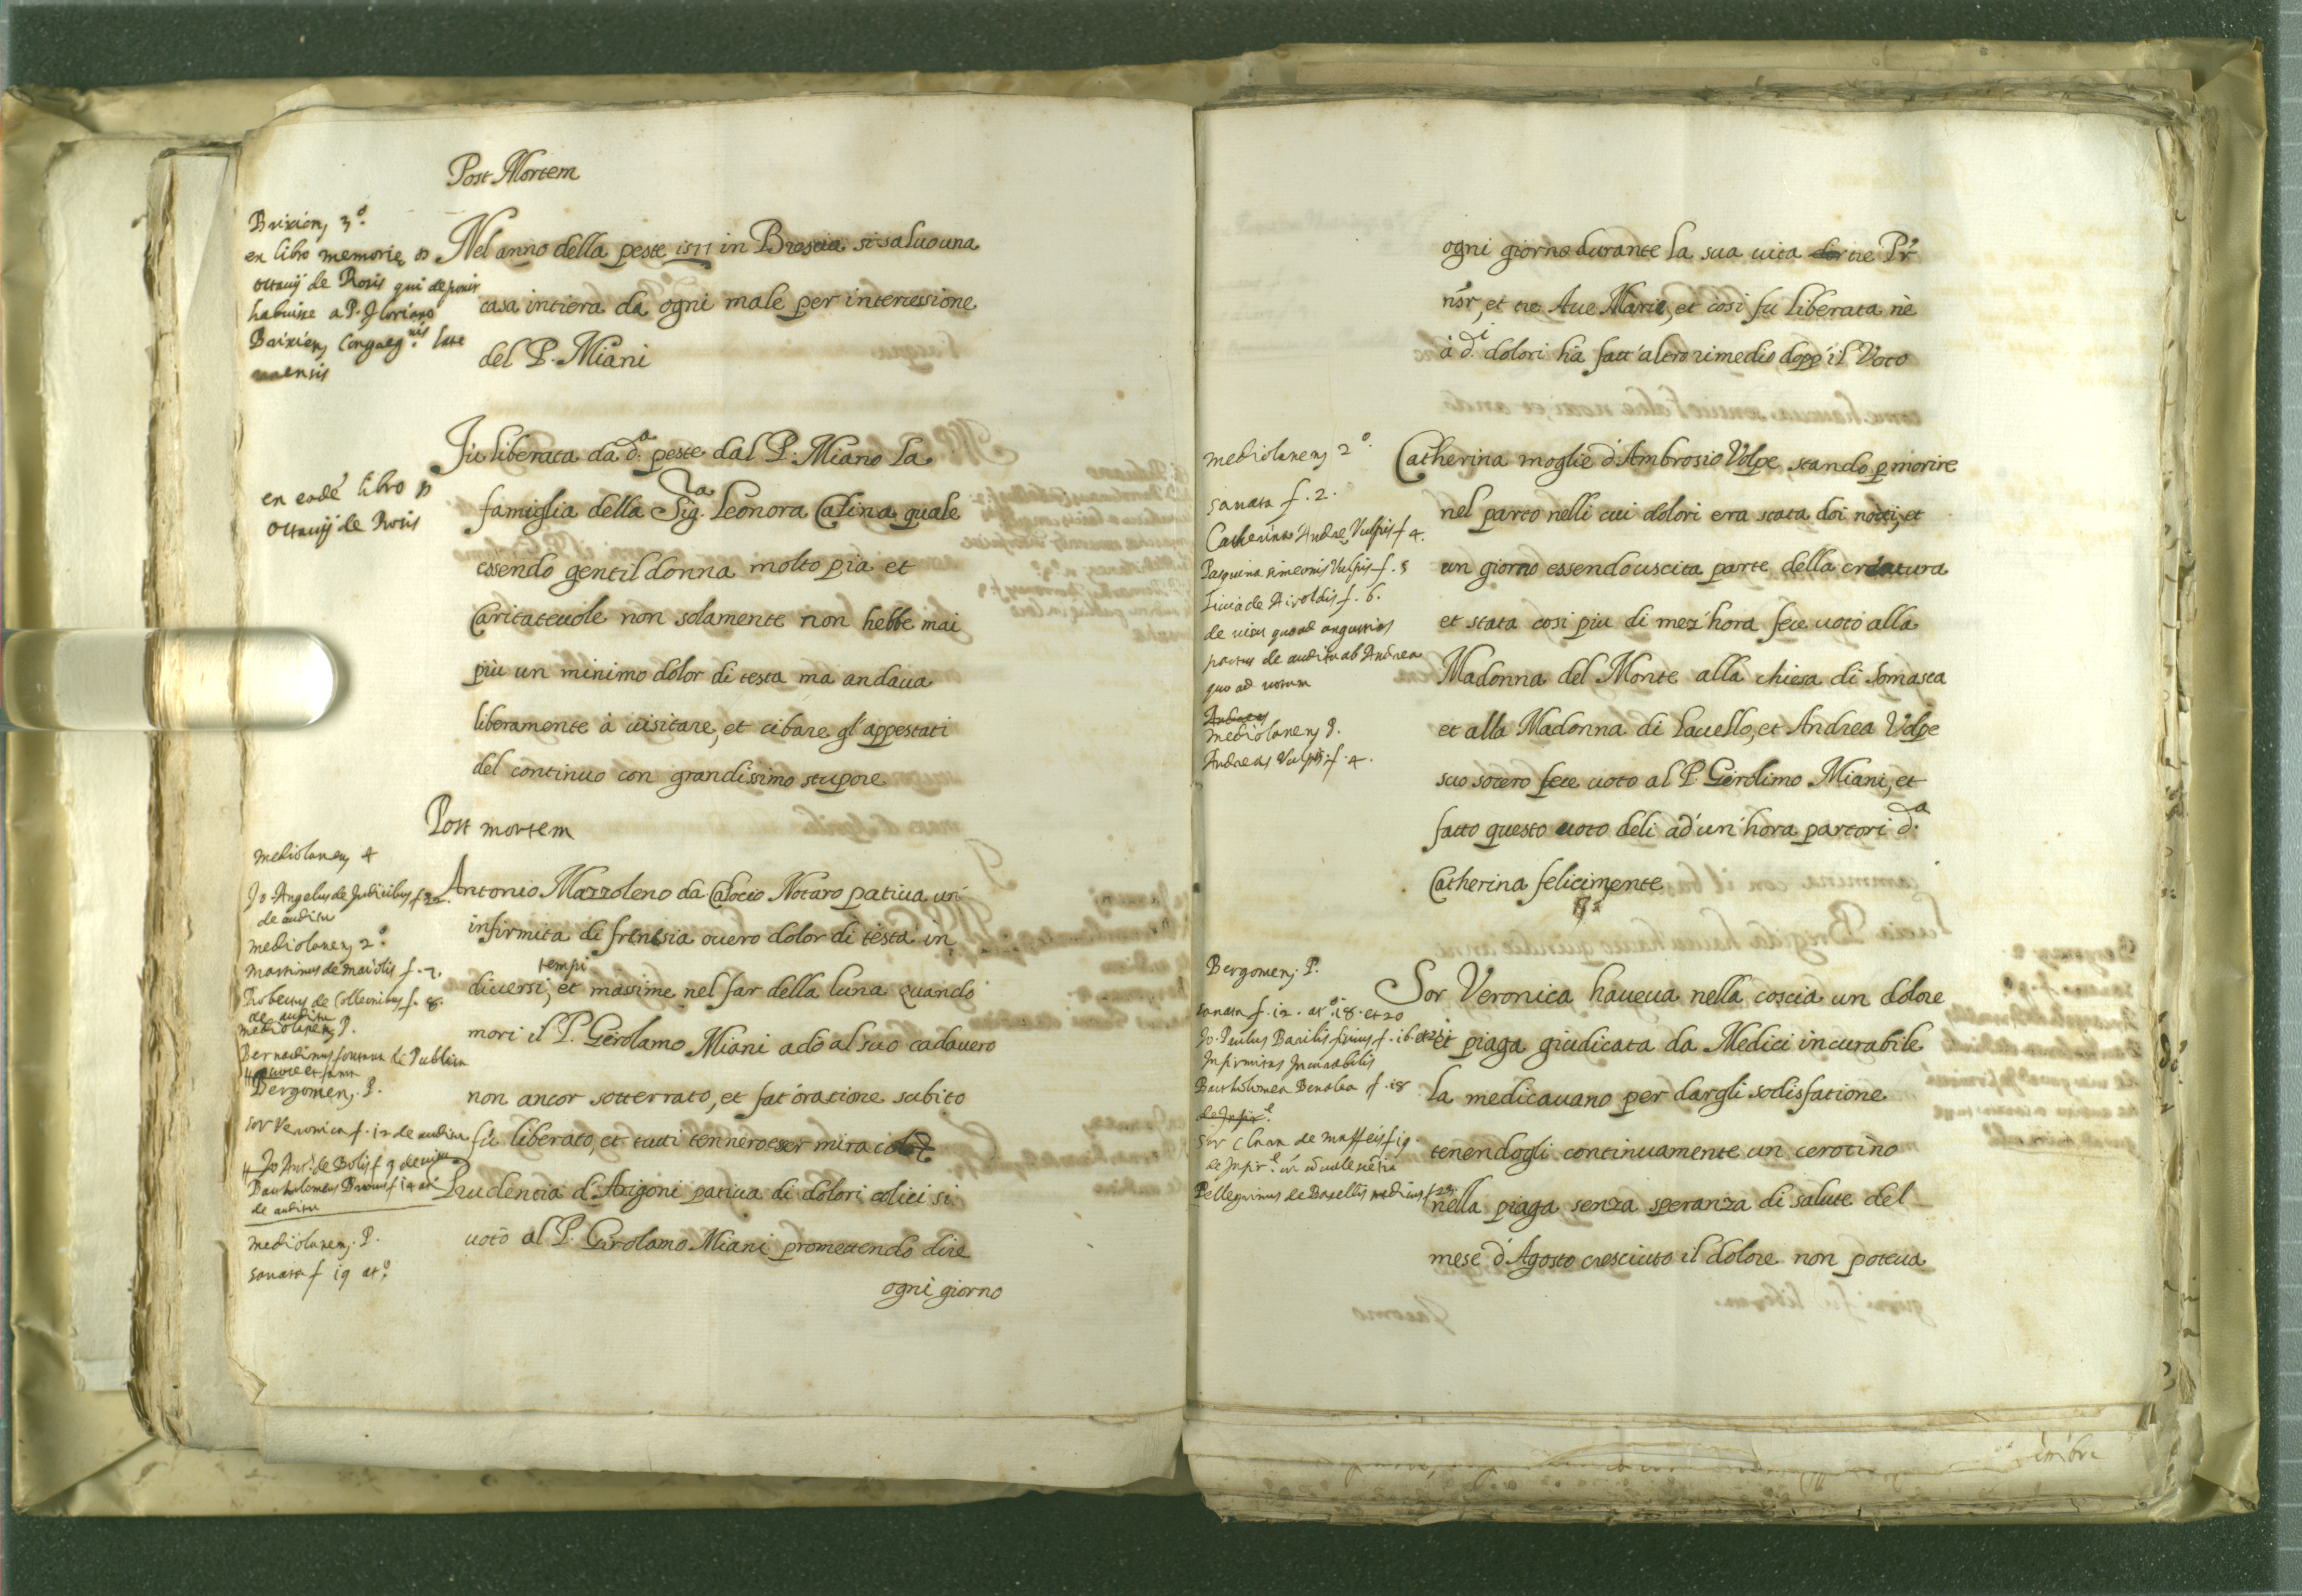 Post Mortem
Brixien, 3º.
ex libro memorię D
Octauij de Rosis qui deponit
habuisse a P. Floriano
Brixien, Congreg.nis
Nel anno della peste 1577 in Brescia si saluò una
casa intiera da ogni male per intercessione
del P. Miani
ex eadé libro D
Octauij de Rosis
Fù liberata da d.a peste dal P. Miano la
famiglia della Sig.ra Leonora Calina quale
essendo gentil donna molto pia et
Caritateuole non solamente non hebbe mai
più un minimo dolor di testa ma andaua
liberamente à uisitare, et cibare gl'appestati
del continuo con grandissimo stupore
Post mortem
Mediolanen, 4
Jo. Angelus de Judicibus f. 22.
de auditu
Mediolanen, 2º.
Martinus de Maiolis f. 7.
Robertus de Colleonibus f. 8.
de auditu
Mediolanen, P.
Bergomen, P.
Sor Veronica f. 12 de auditu
Jo. Ant. de Bolis f. 9 de
de auditu
Mediolanen, P.
sanata f. 19 atº.
Antonio Mazzoleno da Calocio Notaro patiua un'
infirmita di frenesia ouero dolor di testa in
tempi
diuersi, et massime nel far della luna quando
mori il P. Gerolamo Miani adò al suo cadauero
non ancor sotterrato, et fat'oratione subito
fù liberato, et tutti tennero esser miracolo
Prudentia d'Arigoni patiua di dolori colici si
uotò al P. Girolamo Miani promettendo dire
ogni giorno
ogni giorno durante la sua uita tre Pr̃
nr̃, et tre Aue Marie, et cosi fu liberata nè
à d.i dolori hà fatt'altro rimedio dopp'il Voto
Mediolanen, 2º.
sanata f. 2.
Catherina Andreę Vulpis f. 4.
Pasquina simeonis Vulpis f. 5
Liuia de Airoldis f. 6.
de uisu quoad angustias
partus de auditu ab Andrea
quo ad uotum
Andreas
Mediolanen, P.
Andreas Vulpis f. 4.
Catherina moglie d'Ambrosio Volpe, stando p morire
nel parto nelli cui dolori era stata doi notti, et
un giorno essendo uscita parte della creatura
et stata cosi piu di mez'hora fece uoto alla
Madonna del Monte alla chiesa di Somasca
et alla Madonna di Lauello, et Andrea Volpe
suo socero fece uoto al P. Gerolimo Miani, et
fatto questo uoto deli ad'un'hora partori d.a
Catherina felicimente
Bergomen, P.
sanata f. 12. atº. 18. et 20
Jo. Paulus Basilis f. 16.
Infirmitas Incurabilis
Bartholomea Benalea f. 18
Sor Clara de Maffeis f. 19.
Pellegrinus de Boxellis medicus f. 23.
Sor Veronica haueua nella coscia un dolore
et piaga giudicata da Medici incurabile
la medicauano per dargli sodisfatione
tenendogli continuamente un cerotino
nella piaga senza speranza di salute del
mese d'Agosto cresciuto il dolore non poteua